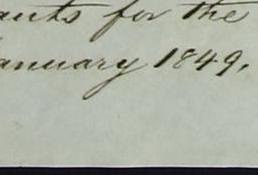 ants for the
anuary 1849.